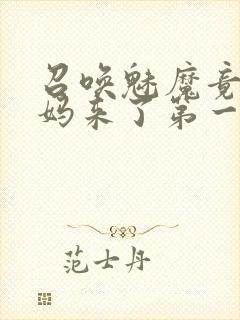 召唤魅魔竟
妈来了第一
范士丹